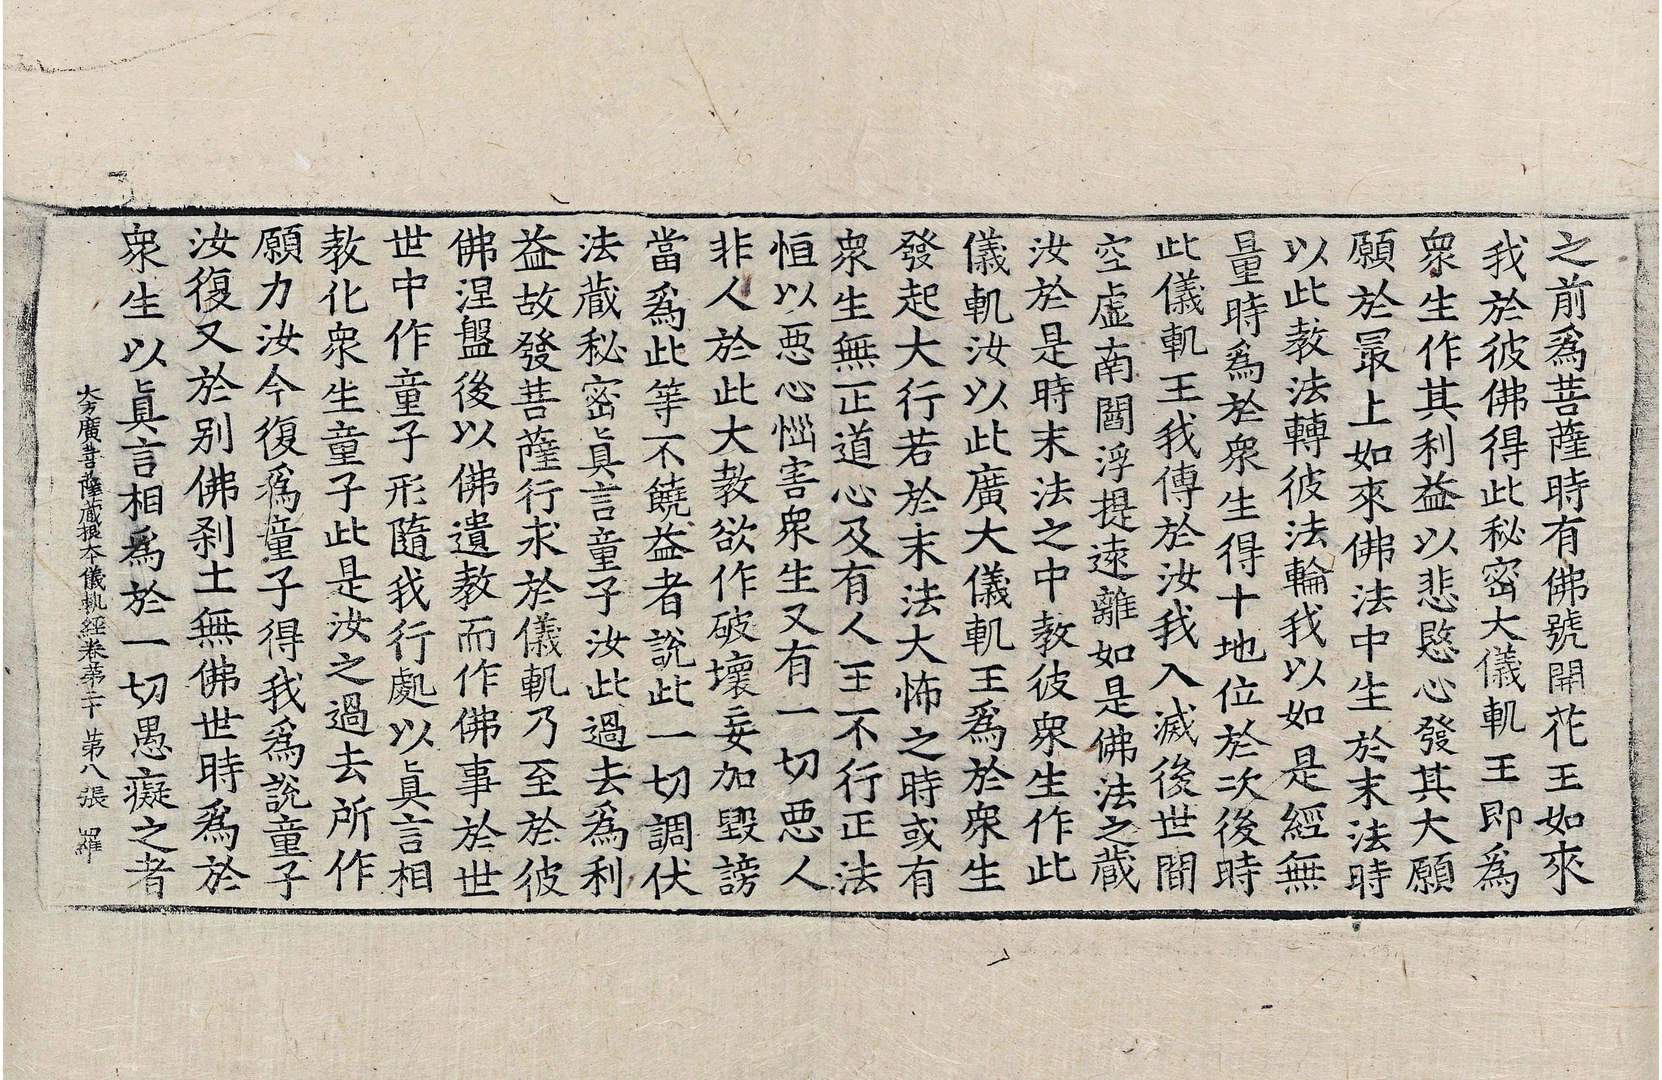 之前爲菩薩時有佛號開花王如來
我於彼佛得此秘密大儀軌王即爲
衆生作其利益以悲愍心發其大願
願於最上如來佛法中生於末法時
以此教法轉彼法輪我以如是經無
量時爲於衆生得十地位於次後時
此儀軌王我傳於汝我入滅後世間
空虛南閻浮提遠離如是佛法之藏
汝於是時末法之中教彼衆生作此
儀軌汝以此廣大儀軌王爲於衆生
發起大行若於末法大怖之時或有
衆生無正道心及有人王不行正法
恒以惡心惱害衆生又有一切惡人
非人於此大教欲作破壞妄加毀謗
當爲此等不饒益者說此一切調伏
法藏秘密眞言童子汝此過去爲利
益故發菩薩行求於儀軌乃至於彼
佛涅盤後以佛遺教而作佛事於世
世中作童子形隨我行處以眞言相
教化衆生童子此是汝之過去所作
願力汝今復爲童子得我爲說童子
汝復又於別佛刹土無佛世時爲於
衆生以眞言相爲於一切愚癡之者
大方廣菩薩藏根本儀軌經卷第二十 第八張 羅